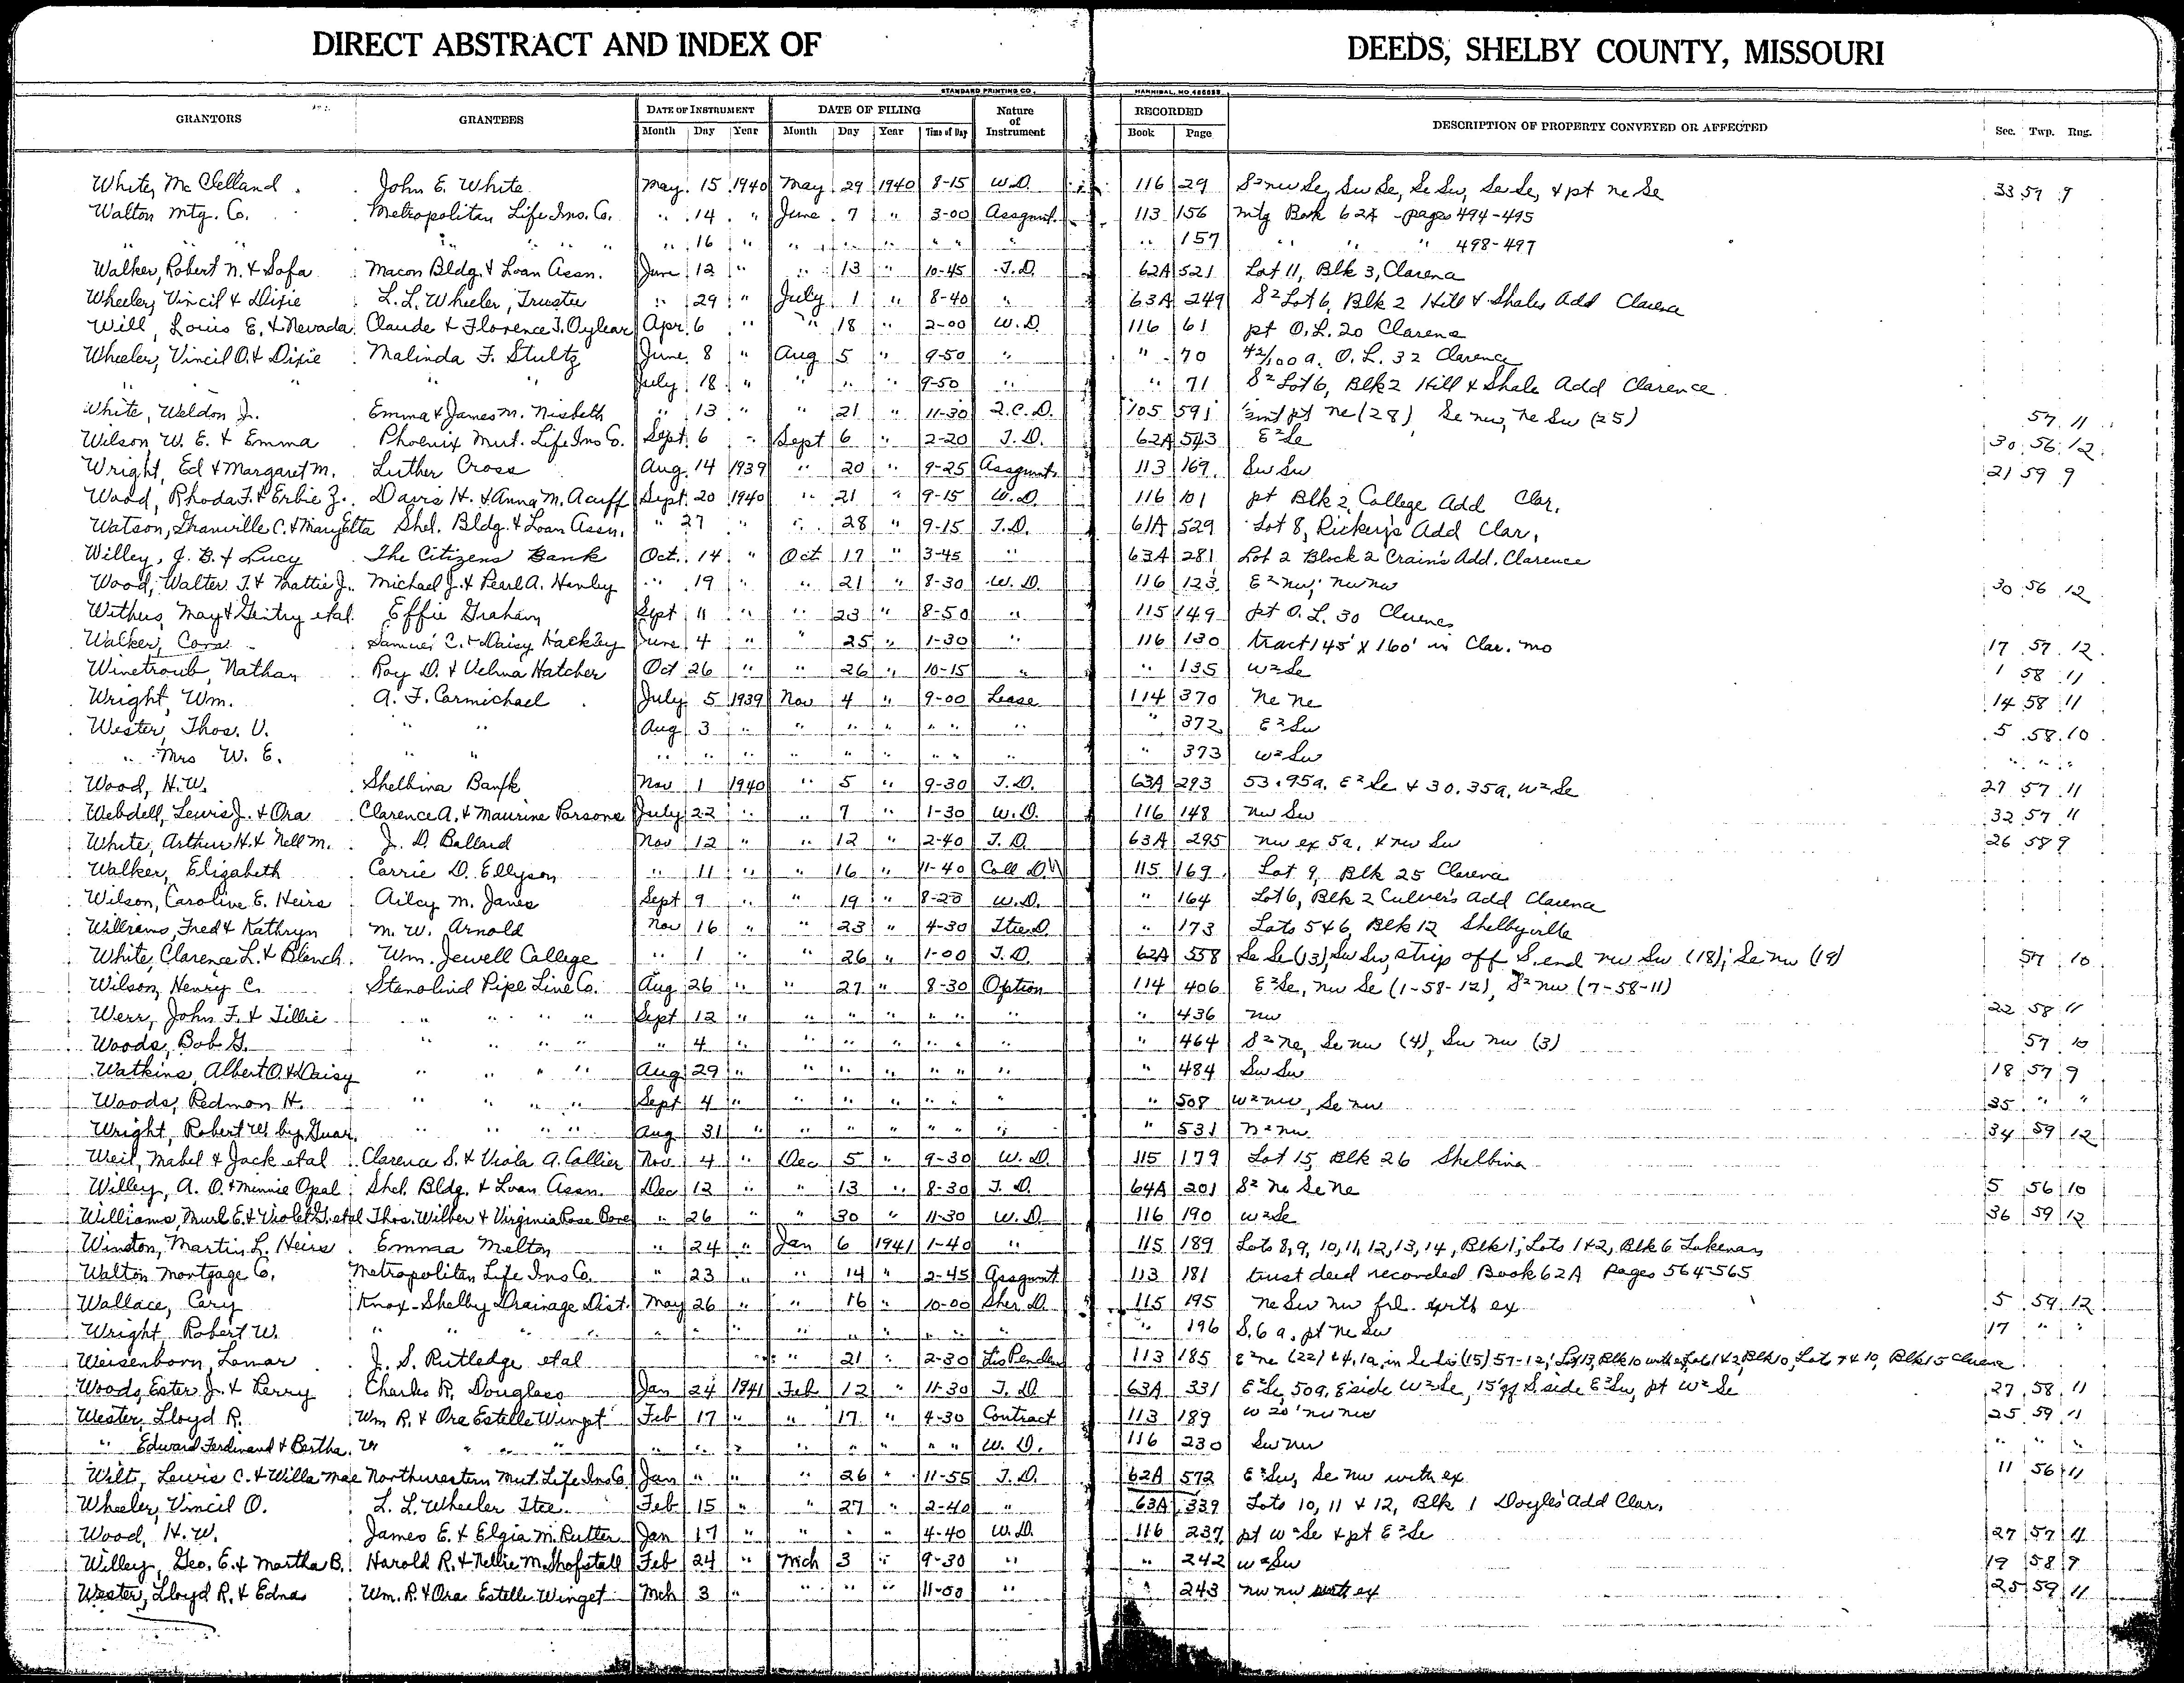 DIRECT ABSTRACT AND INDEX OF DEEDS, SHELBY COUNTY, MISSOURI
STANDARD PRINTING CO. HANNIBAL, MO.
GRANTORS GRANTEES DATE OF INSTRUMENT DATE OF FILING Nature of Instrument RECORDED DESCRIPTION OF PROPERTY CONVEYED OR AFFECTED Sec. Twp. Rng.
Month Day Year Month Day Year Time of Day Book Page
White, McClelland John E. White May 15 1940 May 29 1940 8-15 W.D. 116 29 S² nw Se, Sw Se, Se Sw, Se Se, & pt ne Se 33 59 9
Walton Mtg. Co. Metropolitan Life Ins. Co. " 14 " June 7 " 3-00 Assgnmt. 113 156 Mtg Book 62A - pages 494-495
" " " " " " " 16 " " " " " " " " 157 " " " 498-497
Walker, Robert N. & Sofa Macon Bldg. & Loan Assn. June 12 " " 13 " 10-45 T.D. 62A 521 Lot 11, Blk 3, Clarence
Wheeler, Vincil & Dixie L.L. Wheeler, Trustee " 29 " July 1 " 8-40 " 63A 249 S² Lot 6, Blk 2 Hill & Shales Add Clarence
Will, Louis E. & Nevada Claude & Florence T. Oylear Apr 6 " " 18 " 2-00 W.D. 116 61 pt O.L. 20 Clarence
Wheeler, Vincil O. & Dixie Malinda F. Stultz June 8 " Aug 5 " 9-50 " " 70 42/100 a. O.L. 32 Clarence
" " " " July 18 " " " " 9-50 " " 71 S² Lot 6, Blk 2 Hill & Shale Add Clarence
White, Weldon J. Emma & James M. Nisbeth " 13 " " 21 " 11-30 Q.C.D. 105 591 pt ne (28) Se nw, ne Sw (25) 57 11
Wilson, W. E. & Emma Phoenix Mut. Life Ins Co. Sept. 6 " Sept 6 " 2-20 T.D. 62A 543 E² Se 30 56 12
Wright, Ed & Margaret M. Luther Cross Aug 14 1939 " 20 " 9-25 Assgnmt. 113 169 Sw Sw 21 59 9
Wood, Rhoda F. & Erbie Z. Davis H. & Anna M. Acuff Sept. 20 1940 " 21 " 9-15 W.D. 116 101 pt Blk 2, College Add Clar.
Watson, Granville C. & Mary Etta Shel. Bldg. & Loan Assn. " 27 " " 28 " 9-15 T.D. 61A 529 Lot 8, Rickey's Add Clar.
Willey, J. B. & Lucy The Citizens Bank Oct. 14 " Oct 17 " 3-45 " 63A 281 Lot 2 Block 2 Crain's Add. Clarence
Wood, Walter T. & Mattie J. Michael J. & Pearl A. Henley " 19 " " 21 " 8-30 W.D. 116 123 E² nw; nw nw 30 56 12
Withers, May & Gentry etal. Effie Graham Sept 11 " " 23 " 8-50 " 115 149 pt O.L. 30 Clarence
Walker, Cora Samuel C. & Daisy Hackley June 4 " " 25 " 1-30 " 116 130 tract 145' x 160' in Clar. Mo 17 57 12
Winetroub, Nathan Roy D. & Velma Hatcher Oct 26 " " 26 " 10-15 " " 135 W² Se 1 58 11
Wright, Wm. A. F. Carmichael July 5 1939 Nov 4 " 9-00 Lease 114 370 Ne Ne 14 58 11
Wester, Thos. V. " " Aug 3 " " " " " " " " 372 E² Sw 5 58 10
" Mrs W. E. " " " " " " " " " " " " 373 W² Sw " " "
Wood, H.W. Shelbina Bank Nov 1 1940 " 5 " 9-30 T.D. 63A 293 53.95a. E² Se & 30.35a. W² Se 27 57 11
Webdell, Lewis J. & Ora Clarence A. & Maurine Parsons July 22 " " 7 " 1-30 W.D. 116 148 nw Sw 32 57 11
White, Arthur H. & Nell M. J. D. Ballard Nov 12 " " 12 " 2-40 T.D. 63A 295 nw ex 5a, & nw Sw 26 58 9
Walker, Elizabeth Carrie D. Ellyson " 11 " " 16 " 11-40 Coll D. 115 169 Lot 9, Blk 25 Clarence
Wilson, Caroline E. Heirs Ailcy M. Janes Sept 9 " " 19 " 8-20 W.D. " 164 Lot 6, Blk 2 Culver's Add Clarence
Williams, Fred & Kathryn M. W. Arnold Nov 16 " " 23 " 4-30 Ttee D. " 173 Lots 5 & 6, Blk 12 Shelbyville
White, Clarence L. & Blanch Wm. Jewell College " 1 " " 26 " 1-00 T.D. 62A 558 Se Se (13), Sw Sw, strip off S. end nw Sw (18); Se nw (19) 57 10
Wilson, Henry C. Stanolind Pipe Line Co. Aug 26 " " 27 " 8-30 Option 114 406 E² Se, nw Se (1-58-12), S² nw (7-58-11)
Werr, John F. & Tillie " " " " Sept 12 " " " " " " " " 436 nw 22 58 11
Woods, Bob G. " " " " " 4 " " " " " " " " 464 S² ne, Se nw (4), Sw nw (3) 57 10
Watkins, Albert O. & Daisy " " " " Aug 29 " " " " " " " " 484 Sw Sw 18 57 9
Woods, Redmon H. " " " " Sept 4 " " " " " " " " 508 W² nw, Se nw 35 " "
Wright, Robert W by Guar. " " " " Aug 31 " " " " " " " " 531 N² nw 34 59 12
Weil, Mabel & Jack etal Clarence S. & Viola A. Collier Nov 4 " Dec 5 " 9-30 W.D. 115 179 Lot 15, Blk 26 Shelbina
Willey, A. O. & Minnie Opal Shel. Bldg. & Loan Assn. Dec 12 " " 13 " 8-30 T.D. 64A 201 S² ne Se Ne 5 56 10
Williams, Murl E. & Violet G. etal Thos. Wilber & Virginia Rose Bone " 26 " " 30 " 11-30 W.D. 116 190 W² Se 36 59 12
Winston, Martin L. Heirs Emmaa Melton " 24 " Jan 6 1941 1-40 " 115 189 Lots 8, 9, 10, 11, 12, 13, 14, Blk 1; Lots 1 & 2, Blk 6 Lakenan
Walton Mortgage Co. Metropolitan Life Ins Co. " 23 " " 14 " 2-45 Assgnmt 113 181 trust deed recorded Book 62A Pages 564-565
Wallace, Cary Knox-Shelby Drainage Dist. May 26 " " 16 " 10-00 Sher D. 115 195 ne Sw nw frl. with ex 5 59 12
Wright, Robert W. " " " " " " " " " " " " " 196 S. 6 a. pt ne Sw 17 " "
Weisenborn, Lemar J. S. Rutledge etal " 21 " 2-30 Lis Pendens 113 185 E² ne (22) & 4.1a. in Se (15) 57-12; Lot 13, Blk 10 with ex, Lots 1 & 2, Blk 10, Lots 7 & 10, Blk 15 Clarence
Woods, Ester J. & Perry Charles R. Douglass Jan 24 1941 Feb 12 " 11-30 T.D. 63A 331 E² Se, 50a. E side W² Se, 15' off S side E² Sw, pt W² Se 27 58 11
Wester, Lloyd R. Wm R. & Ora Estelle Winget Feb 17 " " 17 " 4-30 Contract 113 189 W 20' nw nw 25 59 11
" Edward Ferdinand & Bertha W " " " " " " " " " " " W.D. 116 230 Sw nw " " "
Wilt, Lewis C. & Willa Mae Northwestern Mut. Life Ins Co Jan " " " 26 " 11-55 T.D. 62A 572 E² Sw, Se nw with ex 11 56 11
Wheeler, Vincil O. L. L. Wheeler Ttee. Feb 15 " " 27 " 2-40 " 63A 339 Lots 10, 11 & 12, Blk 1 Doyles Add Clar.
Wood, H. W. James E. & Elgia M. Rutter Jan 17 " " " " 4-40 W.D. 116 237 pt W² Se & pt E² Se 27 57 11
Willey, Geo. E. & Martha B. Harold R. & Nellie M. Shofstall Feb 24 " Mch 3 " 9-30 " " 242 W² Sw 19 58 9
Wester, Lloyd R. & Edna Wm. R. & Ora Estelle Winget Mch 3 " " " " 11-00 " " 243 nw nw with ex 25 59 11